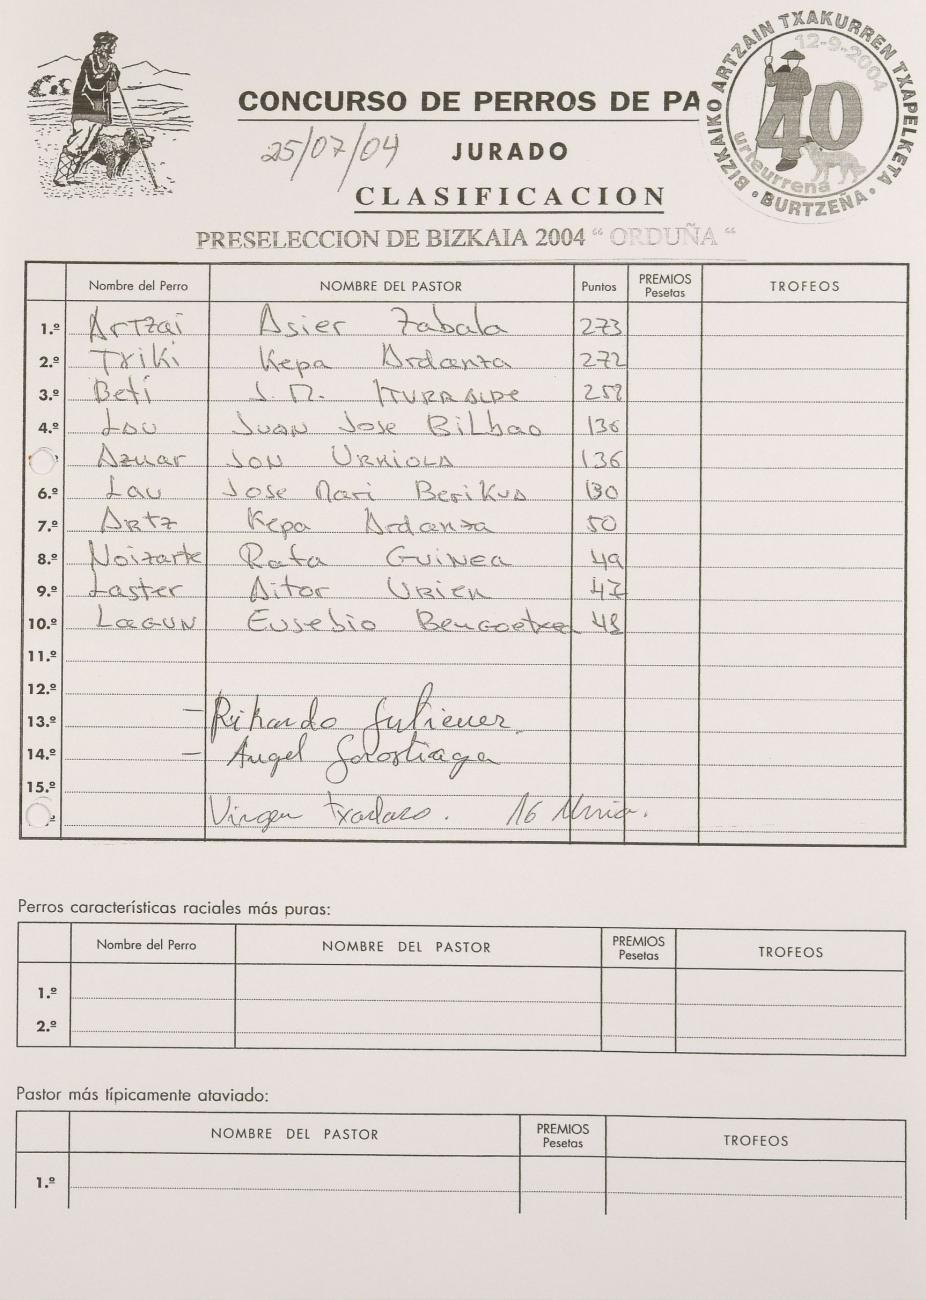 CONCURSO DE PERROS DE PA
25/07/04
JURADO
CLASIFICACION
PRESELECCION DE BIZKAIA 2004 “ ORDUÑA “
BIZKAIKO ARTZAIN TXAKURREN TXAPELKETA • BURTZEÑA •
12-9-2004
40
urteurrena
Nombre del Perro NOMBRE DEL PASTOR Puntos PREMIOS Pesetas TROFEOS
1.º Artzai Asier Zabala 273
2.º Txiki Kepa Ardanza 272
3.º Beti J. M. ITURRALDE
4.º Lau Juan Jose Bilbao 136
Azuar JON URKIOLA 136
6.º Lau Jose Mari Berikua 130
7.º Artz Kepa Ardanza 50
8.º Noizarte Rafa GUINEA 49
9.º Laster Aitor URIEN 47
10.º LAGUN Eusebio Bengoetxea 48
11.º
12.º
13.º - Rikardo
14.º - Angel Gorostiaga
15.º
Virgen Txarlazo. 16
Perros características raciales más puras:
Nombre del Perro NOMBRE DEL PASTOR PREMIOS Pesetas TROFEOS
1.º
2.º
Pastor más típicamente ataviado:
NOMBRE DEL PASTOR PREMIOS Pesetas TROFEOS
1.º